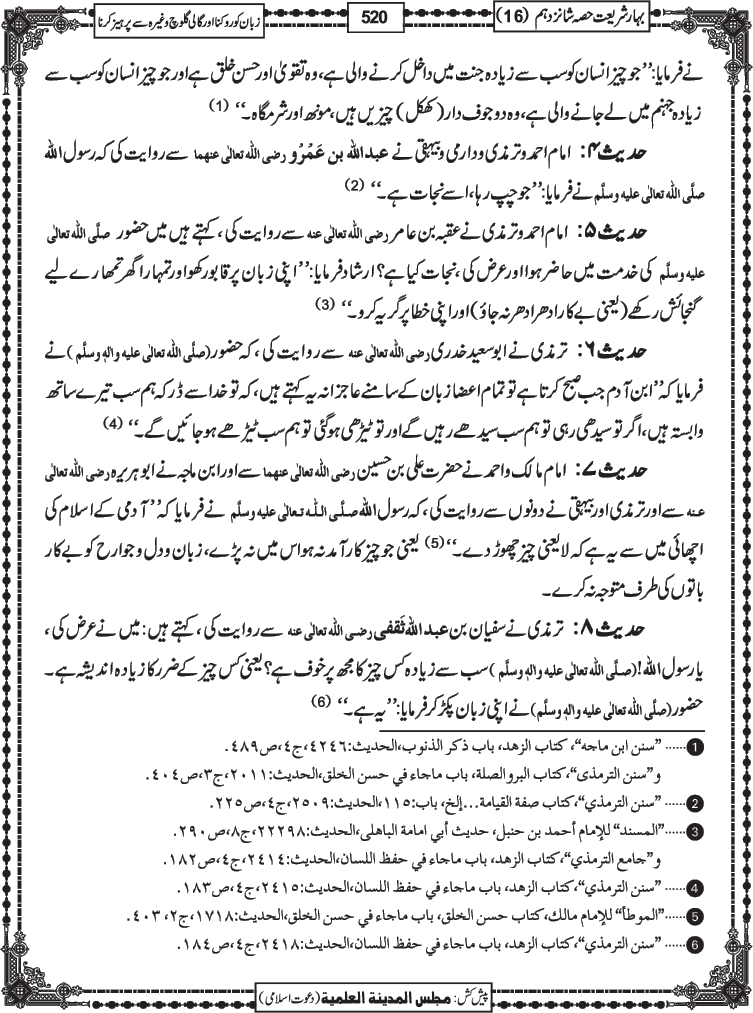 بہارِ شریعت حصہ شانزدہم (16)
520
زبان کو روکنا اور گالی گلوچ وغیرہ سے پرہیز کرنا
نے فرمایا: ’’جو چیز انسان کو سب سے زیادہ جنت میں داخل کرنے والی ہے، وہ تقویٰ اور حسن خلق ہے اور جو چیز انسان کو سب سے
زیادہ جہنم میں لے جانے والی ہے، وہ دو جوف دار (کھکل) چیزیں ہیں، مونھ اور شرمگاہ۔‘‘ (1)
حدیث ۴: امام احمد و ترمذی و دارمی و بیہقی نے عبداللہ بن عَمْرْو رضی اللہ تعالٰی عنھما سے روایت کی کہ رسول اللہ
صلَّی اللہ تعالٰی علیہ وسلَّم نے فرمایا: ’’جو چپ رہا، اسے نجات ہے۔‘‘ (2)
حدیث ۵: امام احمد و ترمذی نے عقبہ بن عامر رضی اللہ تعالٰی عنہ سے روایت کی، کہتے ہیں میں حضور صلَّی اللہ تعالٰی
علیہ وسلَّم کی خدمت میں حاضر ہوا اور عرض کی، نجات کیا ہے؟ ارشاد فرمایا: ’’اپنی زبان پر قابو رکھو اور تمہارا گھر تمھارے لیے
گنجائش رکھے (یعنی بے کار ادھر ادھر نہ جاؤ) اور اپنی خطا پر گریہ کرو۔‘‘ (3)
حدیث ۶: ترمذی نے ابو سعید خدری رضی اللہ تعالٰی عنہ سے روایت کی، کہ حضور (صلَّی اللہ تعالٰی علیہ والہٖ وسلَّم) نے
فرمایا کہ ’’ابن آدم جب صبح کرتا ہے تو تمام اعضا زبان کے سامنے عاجزانہ یہ کہتے ہیں، کہ تو خدا سے ڈر کہ ہم سب تیرے ساتھ
وابستہ ہیں، اگر تو سیدھی رہی تو ہم سب سیدھے رہیں گے اور تو ٹیڑھی ہوگئی تو ہم سب ٹیڑھے ہو جائیں گے۔‘‘ (4)
حدیث ۷: امام مالک و احمد نے حضرت علی بن حسین رضی اللہ تعالٰی عنھما سے اور ابن ماجہ نے ابوہریرہ رضی اللہ تعالٰی
عنہ سے اور ترمذی اور بیہقی نے دونوں سے روایت کی، کہ رسول اللہ صلَّی اللہ تعالٰی علیہ وسلَّم نے فرمایا کہ ’’آدمی کے اسلام کی
اچھائی میں سے یہ ہے کہ لایعنی چیز چھوڑ دے۔‘‘ (5) یعنی جو چیز کارآمد نہ ہو اس میں نہ پڑے، زبان و دل و جوارح کو بے کار
باتوں کی طرف متوجہ نہ کرے۔
حدیث ۸: ترمذی نے سفیان بن عبداللہ ثَقَفی رضی اللہ تعالٰی عنہ سے روایت کی، کہتے ہیں: میں نے عرض کی،
یارسول اللہ! (صلَّی اللہ تعالٰی علیہ والہٖ وسلَّم) سب سے زیادہ کس چیز کا مجھ پر خوف ہے؟ یعنی کس چیز کے ضرر کا زیادہ اندیشہ ہے۔
حضور (صلَّی اللہ تعالٰی علیہ والہٖ وسلَّم) نے اپنی زبان پکڑ کر فرمایا: ’’یہ ہے۔‘‘ (6)
1 ...... ”سنن ابن ماجہ“، کتاب الزھد، باب ذکر الذنوب،الحدیث:٤٢٤٦،ج٤،ص٤٨٩.
و”سنن الترمذی“،کتاب البروالصلۃ، باب ماجاء في حسن الخلق،الحدیث:٢٠١١،ج٣،ص٤٠٤.
2 ...... ”سنن الترمذي“،کتاب صفۃ القیامۃ...إلخ، باب:١١٥،الحدیث:٢٥٠٩،ج٤،ص٢٢٥.
3 ......”المسند“ للإمام أحمد بن حنبل، حدیث أبي امامۃ الباھلی،الحدیث:٢٢٢٩٨،ج٨،ص٢٩٠.
و”جامع الترمذي“،کتاب الزھد، باب ماجاء في حفظ اللسان،الحدیث:٢٤١٤،ج٤،ص١٨٢.
4 ...... ”سنن الترمذي“،کتاب الزھد، باب ماجاء في حفظ اللسان،الحدیث:٢٤١٥،ج٤،ص١٨٣.
5 ......”الموطأ“ للإمام مالک،کتاب حسن الخلق، باب ماجاء في حسن الخلق،الحدیث:١٧١٨،ج٢، ٤٠٣.
6 ...... ”سنن الترمذي“،کتاب الزھد، باب ماجاء في حفظ اللسان،الحدیث:٢٤١٨،ج٤،ص١٨٤.
پیش کش: مجلس المدینۃ العلمیۃ (دعوت اسلامی)